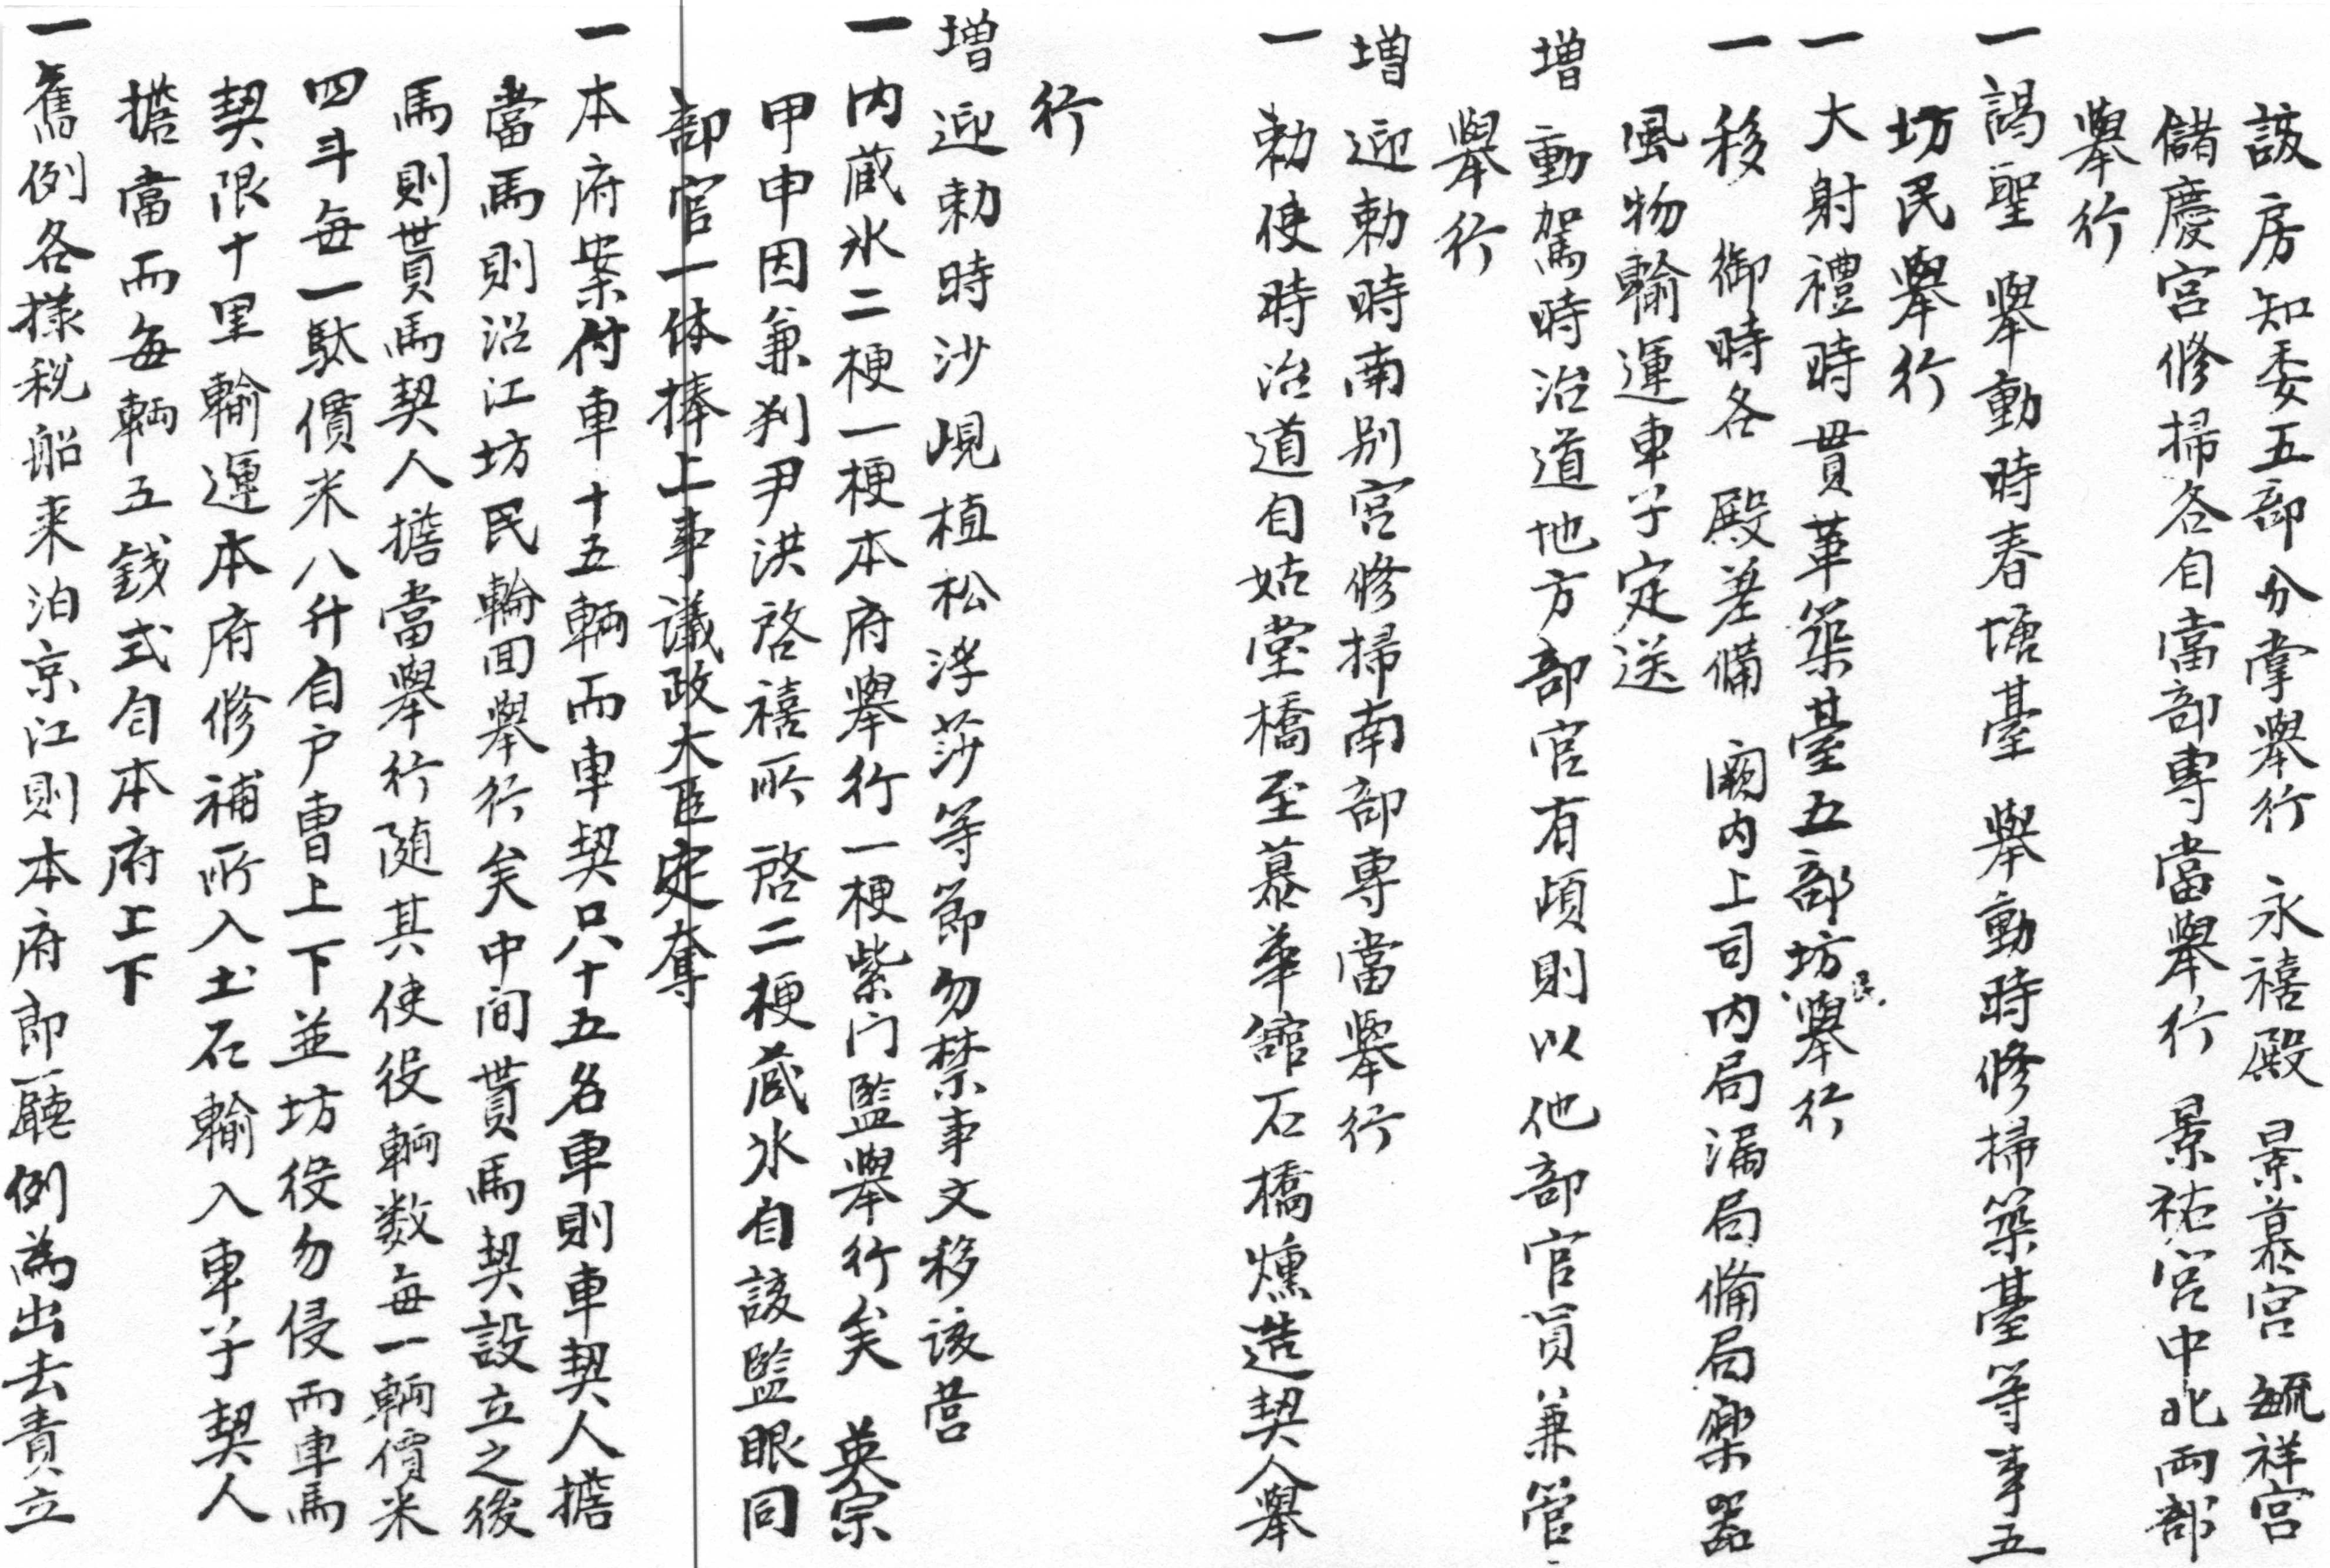 該房知委五部分掌舉行 永禧殿 景慕宮 毓祥宮
儲慶宮修掃各自當部專當舉行 景祐宮中北兩部
舉行
一 謁聖 舉動時春塘臺 舉動時修掃築臺等事五
坊民舉行
一 大射禮時貫革築臺五部坊民舉行
一 移 御時各 殿差備 闕內上司內局漏局備局樂器
風物輸運車子定送
增 動駕時治道地方部官有頉則以他部官員兼管
舉行
增 迎勅時南別宮修掃南部專當舉行
一 勅使時治道自姑堂橋至慕華舘石橋燻造契人舉
行
增 迎勅時沙峴植松浮莎等節勿禁事文移該營
一 內蔵氷二梗一梗本府舉行一梗紫门監舉行矣 英宗
甲申因兼判尹洪啓禧所 啓二梗蔵氷自該監眼同
部官一体捧上事議政大臣定奪
一 本府案付車十五輛而車契只十五名車則車契人擔
當馬則沿江坊民輪回舉行矣中间貰馬契設立之後
馬則貰馬契人擔當舉行随其使役輛数每一輛價米
四斗每一駄價米八升自户曹上下並坊役勿侵而車馬
契限十里輸運本府修補所入土石輸入車子契人
擔當而每輛五錢式自本府上下
一 舊例各樣税船来泊京江則本府郎廳例為出去責立